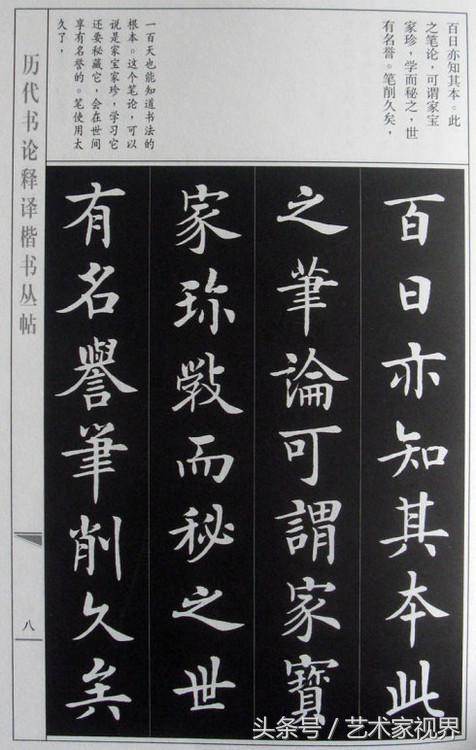 百日亦知其本。此
之笔论,可谓家宝
家珍,学而秘之,世
有名誉。笔削久矣,
一百天也能知道书法的
根本。这个笔论,可以
说是家宝家珍,学习它
还要秘藏它,会在世间
享有名誉的。笔使用太
久了,
百日亦知其本此
之筆論可謂家寶
家珎斆而秘之世
有名譽筆削久矣
历代书论释译楷书丛帖
八
头条号 / 艺术家视界